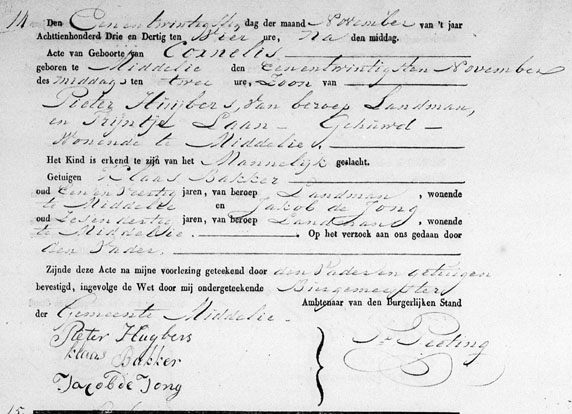 14 Den Een en twintigsten dag der maand November van 't jaar
Achttienhonderd Drie en Dertig ten Vier ure, Na den middag.
Acte van Geboorte van Cornelis
geboren te Middelie den een en twintigsten November
des middags ten twee ure, Zoon van
Pieter Huijbers, van beroep Landman,
en Trijntje Laan - Gehuwd -
Wonende te Middelie.
Het Kind is erkend te zijn van het Mannelijk geslacht.
Getuigen Klaas Bakker
oud Een en Veertig jaren, van beroep Landman, wonende
te Middelie en Jakob de Jong
oud Zes en dertig jaren, van beroep Landman, wonende
te Middelie. Op het verzoek aan ons gedaan door
den Vader.
Zijnde deze Acte na mijne voorlezing geteekend door den Vader en getuigen
bevestigd, ingevolge de Wet door mij ondergeteekende Burgemeester
Ambtenaar van den Burgerlijken Stand
der Gemeente Middelie.
Pieter Huybers
klaas Bakker
Jacob de Jong
15.